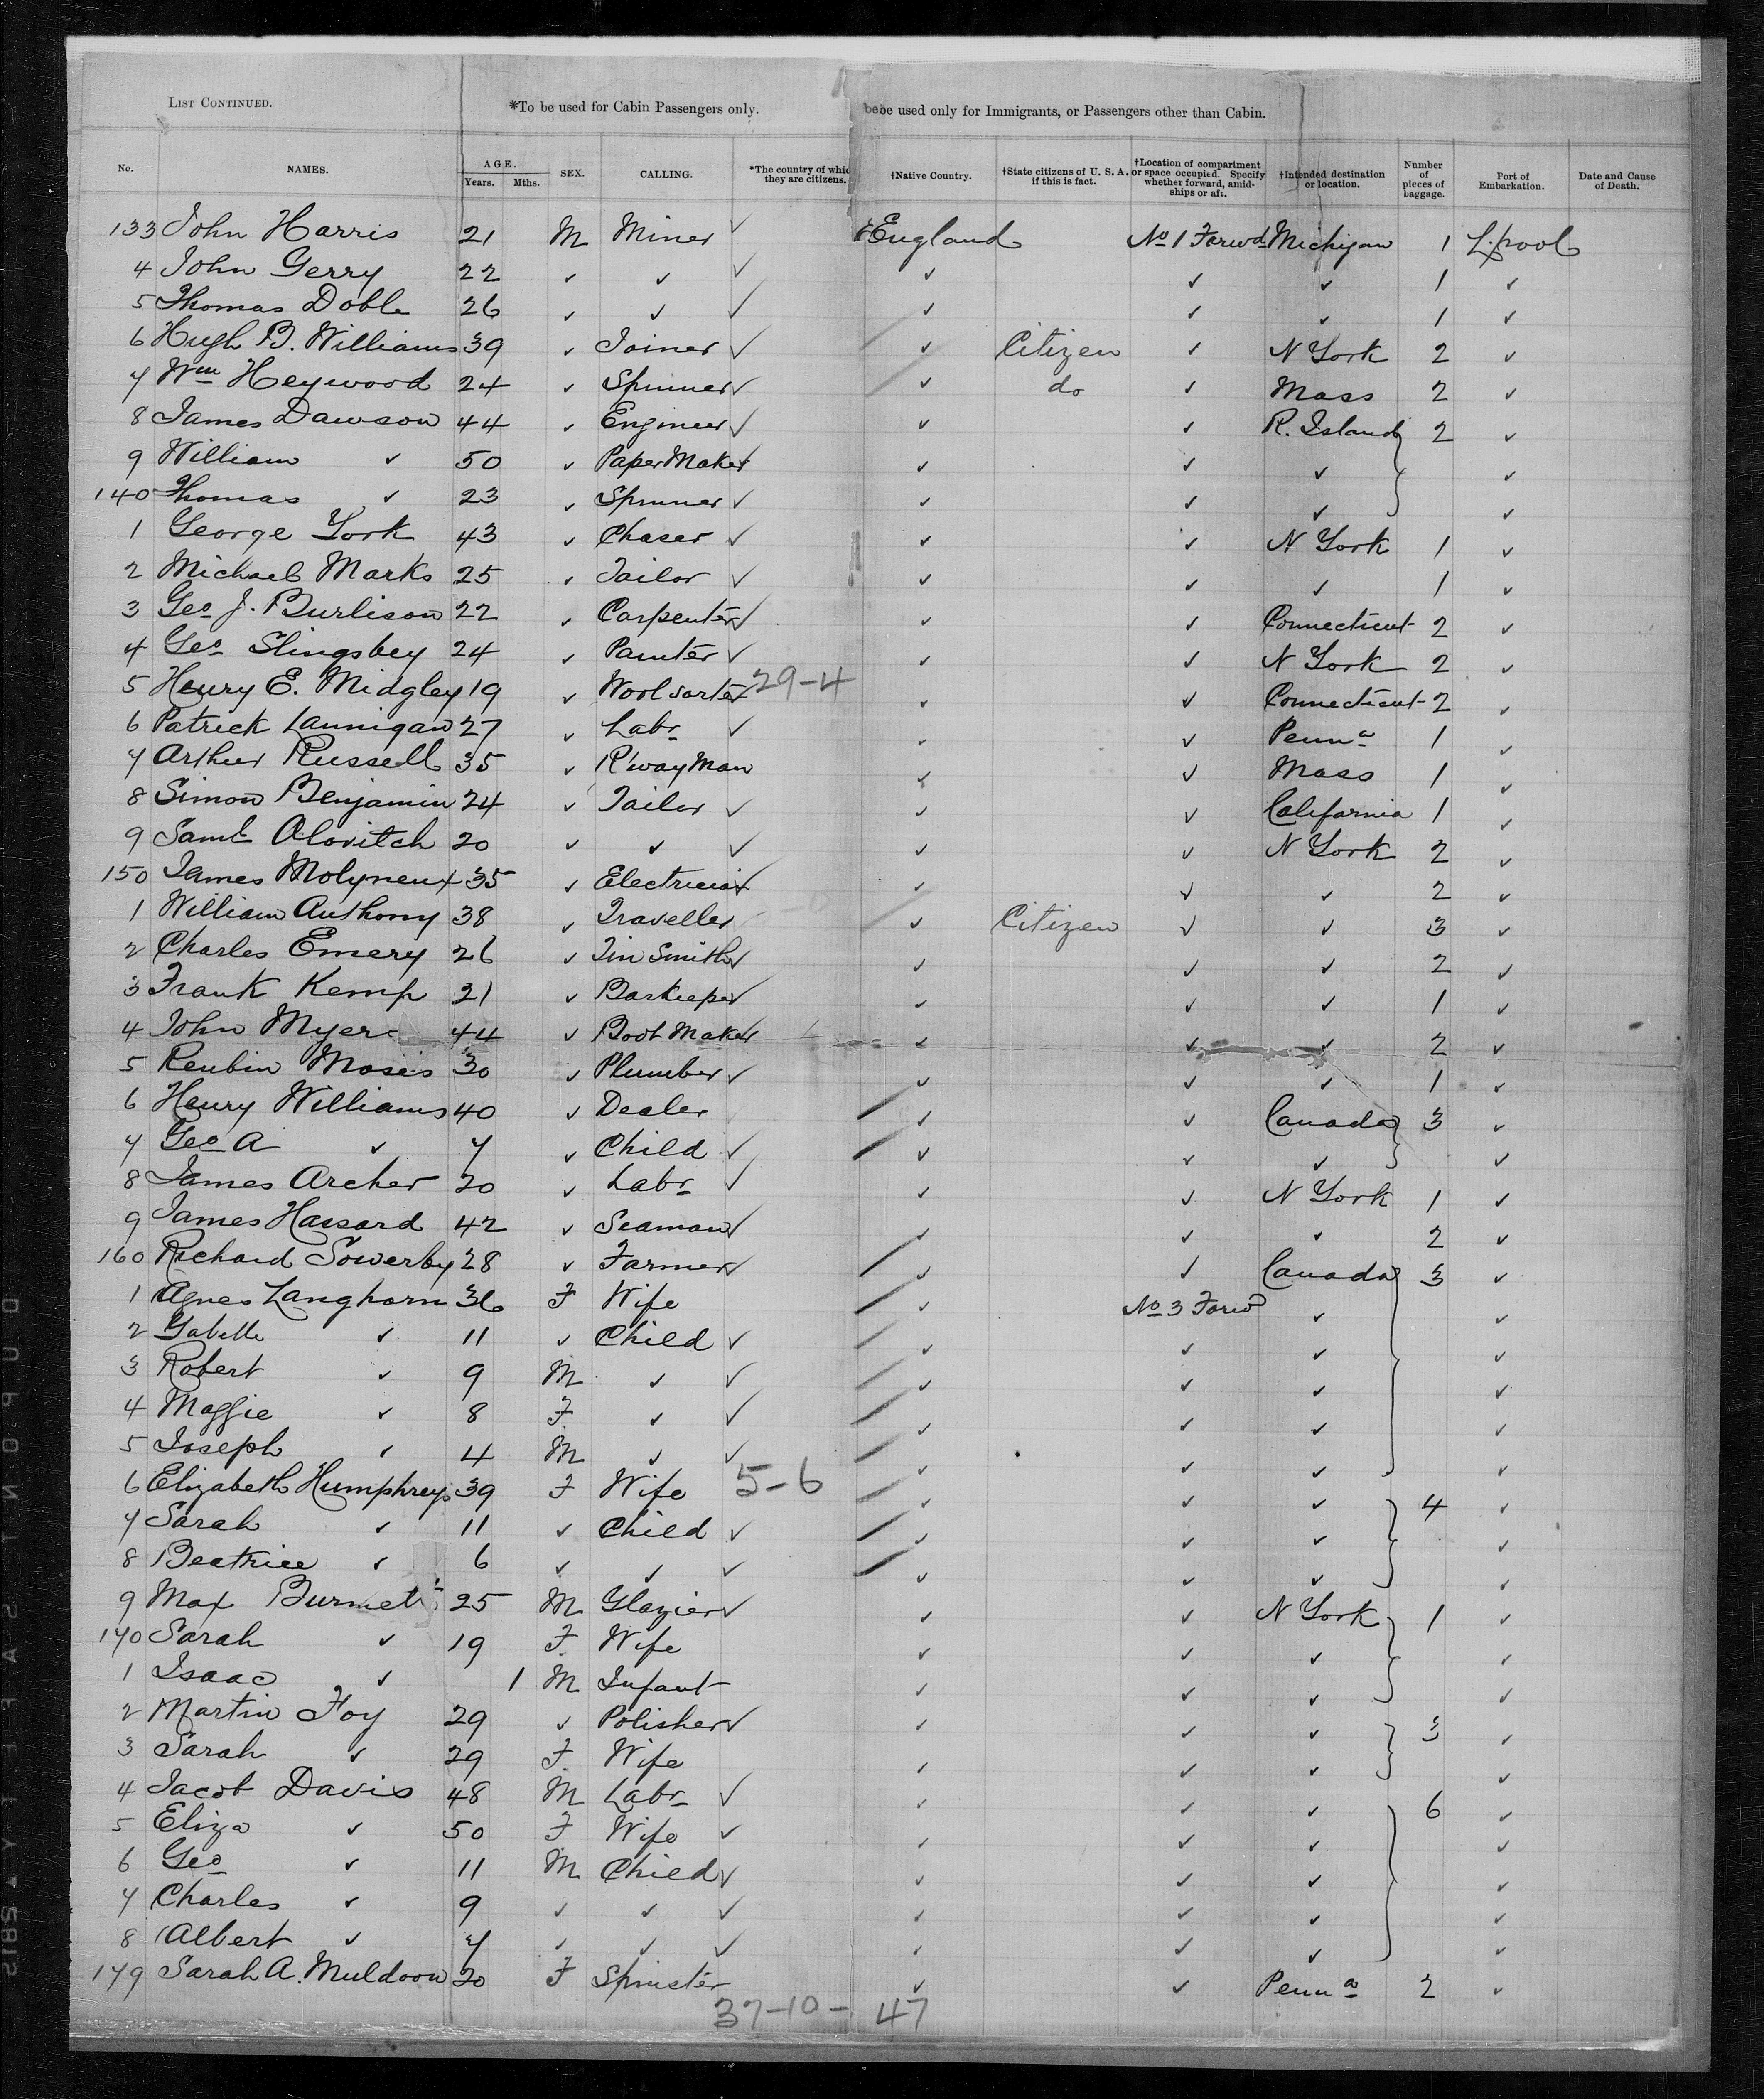 LIST CONTINUED. *To be used for Cabin Passengers only. be used only for Immigrants, or Passengers other than Cabin.
No. NAMES. AGE. Years. Mths. SEX. CALLING. *The country of which they are citizens. †Native Country. †State citizens of U. S. A. if this is fact. †Location of compartment or space occupied. Specify whether forward, amidships or aft. †Intended destination or location. Number of pieces of baggage. Port of Embarkation. Date and Cause of Death.
133 John Harris 21 M Miner ✓ England No 1 Forwd Michigan 1 L'pool
4 John Gerry 22 ✓ ✓ ✓ ✓ ✓ ✓ 1 ✓
5 Thomas Doble 26 ✓ ✓ ✓ ✓ ✓ ✓ 1 ✓
6 Hugh B. Williams 39 ✓ Joiner ✓ ✓ Citizen ✓ N York 2 ✓
7 Wm Heywood 24 ✓ Spinner ✓ ✓ do ✓ Mass 2 ✓
8 James Dawson 44 ✓ Engineer ✓ ✓ ✓ R. Island 2 ✓
9 William ✓ 50 ✓ Paper Maker ✓ ✓ ✓ ✓
140 Thomas ✓ 23 ✓ Spinner ✓ ✓ ✓ ✓ ✓
1 George York 43 ✓ Chaser ✓ ✓ ✓ N York 1 ✓
2 Michael Marks 25 ✓ Tailor ✓ ✓ ✓ ✓ 1 ✓
3 Geo J. Burlison 22 ✓ Carpenter ✓ ✓ ✓ Connecticut 2 ✓
4 Geo Slingsbey 24 ✓ Painter ✓ ✓ ✓ N York 2 ✓
5 Henry E. Midgley 19 ✓ Wool sorter 29-4 ✓ ✓ Connecticut 2 ✓
6 Patrick Lannigan 27 ✓ Labr ✓ ✓ ✓ Penna 1 ✓
7 Arthur Russell 35 ✓ R'way Man ✓ ✓ Mass 1 ✓
8 Simon Benjamin 24 ✓ Tailor ✓ ✓ ✓ California 1 ✓
9 Saml Alovitch 20 ✓ ✓ ✓ ✓ ✓ N York 2 ✓
150 James Molyneux 35 ✓ Electrician ✓ ✓ ✓ 2 ✓
1 William Anthony 38 ✓ Traveller ✓ Citizen ✓ ✓ 3 ✓
2 Charles Emery 26 ✓ Tin Smith ✓ ✓ ✓ ✓ 2 ✓
3 Frank Kemp 21 ✓ Barkeeper ✓ ✓ ✓ ✓ 1 ✓
4 John Myers 44 ✓ Boot Maker ✓ ✓ ✓ 2 ✓
5 Reubin Moses 30 ✓ Plumber ✓ ✓ ✓ ✓ 1 ✓
6 Henry Williams 40 ✓ Dealer ✓ ✓ Canada 3 ✓
7 Geo A ✓ 7 ✓ Child ✓ ✓ ✓ ✓ ✓
8 James Archer 20 ✓ Labr ✓ ✓ ✓ N York 1 ✓
9 James Hassard 42 ✓ Seaman ✓ ✓ ✓ ✓ 2 ✓
160 Richard Sowerby 28 ✓ Farmer ✓ ✓ ✓ Canada 3 ✓
1 Agnes Langhorn 36 F Wife ✓ No 3 Forwd ✓ ✓
2 Isabella ✓ 11 ✓ Child ✓ ✓ ✓ ✓ ✓
3 Robert ✓ 9 M ✓ ✓ ✓ ✓ ✓ ✓
4 Maggie ✓ 8 F ✓ ✓ ✓ ✓ ✓ ✓
5 Joseph ✓ 4 M ✓ ✓ ✓ ✓ ✓ ✓
6 Elizabeth Humphreys 39 F Wife 5-6 ✓ ✓ ✓ 4 ✓
7 Sarah ✓ 11 ✓ Child ✓ ✓ ✓ ✓ ✓
8 Beatrice ✓ 6 ✓ ✓ ✓ ✓ ✓ ✓ ✓
9 Max Burnett 25 M Glazier ✓ ✓ ✓ N York 1 ✓
170 Sarah ✓ 19 F Wife ✓ ✓ ✓ ✓
1 Isaac ✓ 1 M Infant ✓ ✓ ✓ ✓
2 Martin Foy 29 ✓ Polisher ✓ ✓ ✓ ✓ 3 ✓
3 Sarah ✓ 29 F Wife ✓ ✓ ✓ ✓
4 Jacob Davis 48 M Labr ✓ ✓ ✓ ✓ 6 ✓
5 Eliza ✓ 50 F Wife ✓ ✓ ✓ ✓ ✓
6 Geo ✓ 11 M Child ✓ ✓ ✓ ✓ ✓
7 Charles ✓ 9 ✓ ✓ ✓ ✓ ✓ ✓ ✓
8 Albert ✓ 7 ✓ ✓ ✓ ✓ ✓ ✓ ✓
179 Sarah A. Muldoon 20 F Spinster ✓ ✓ Penna 2 ✓
37-10- 47